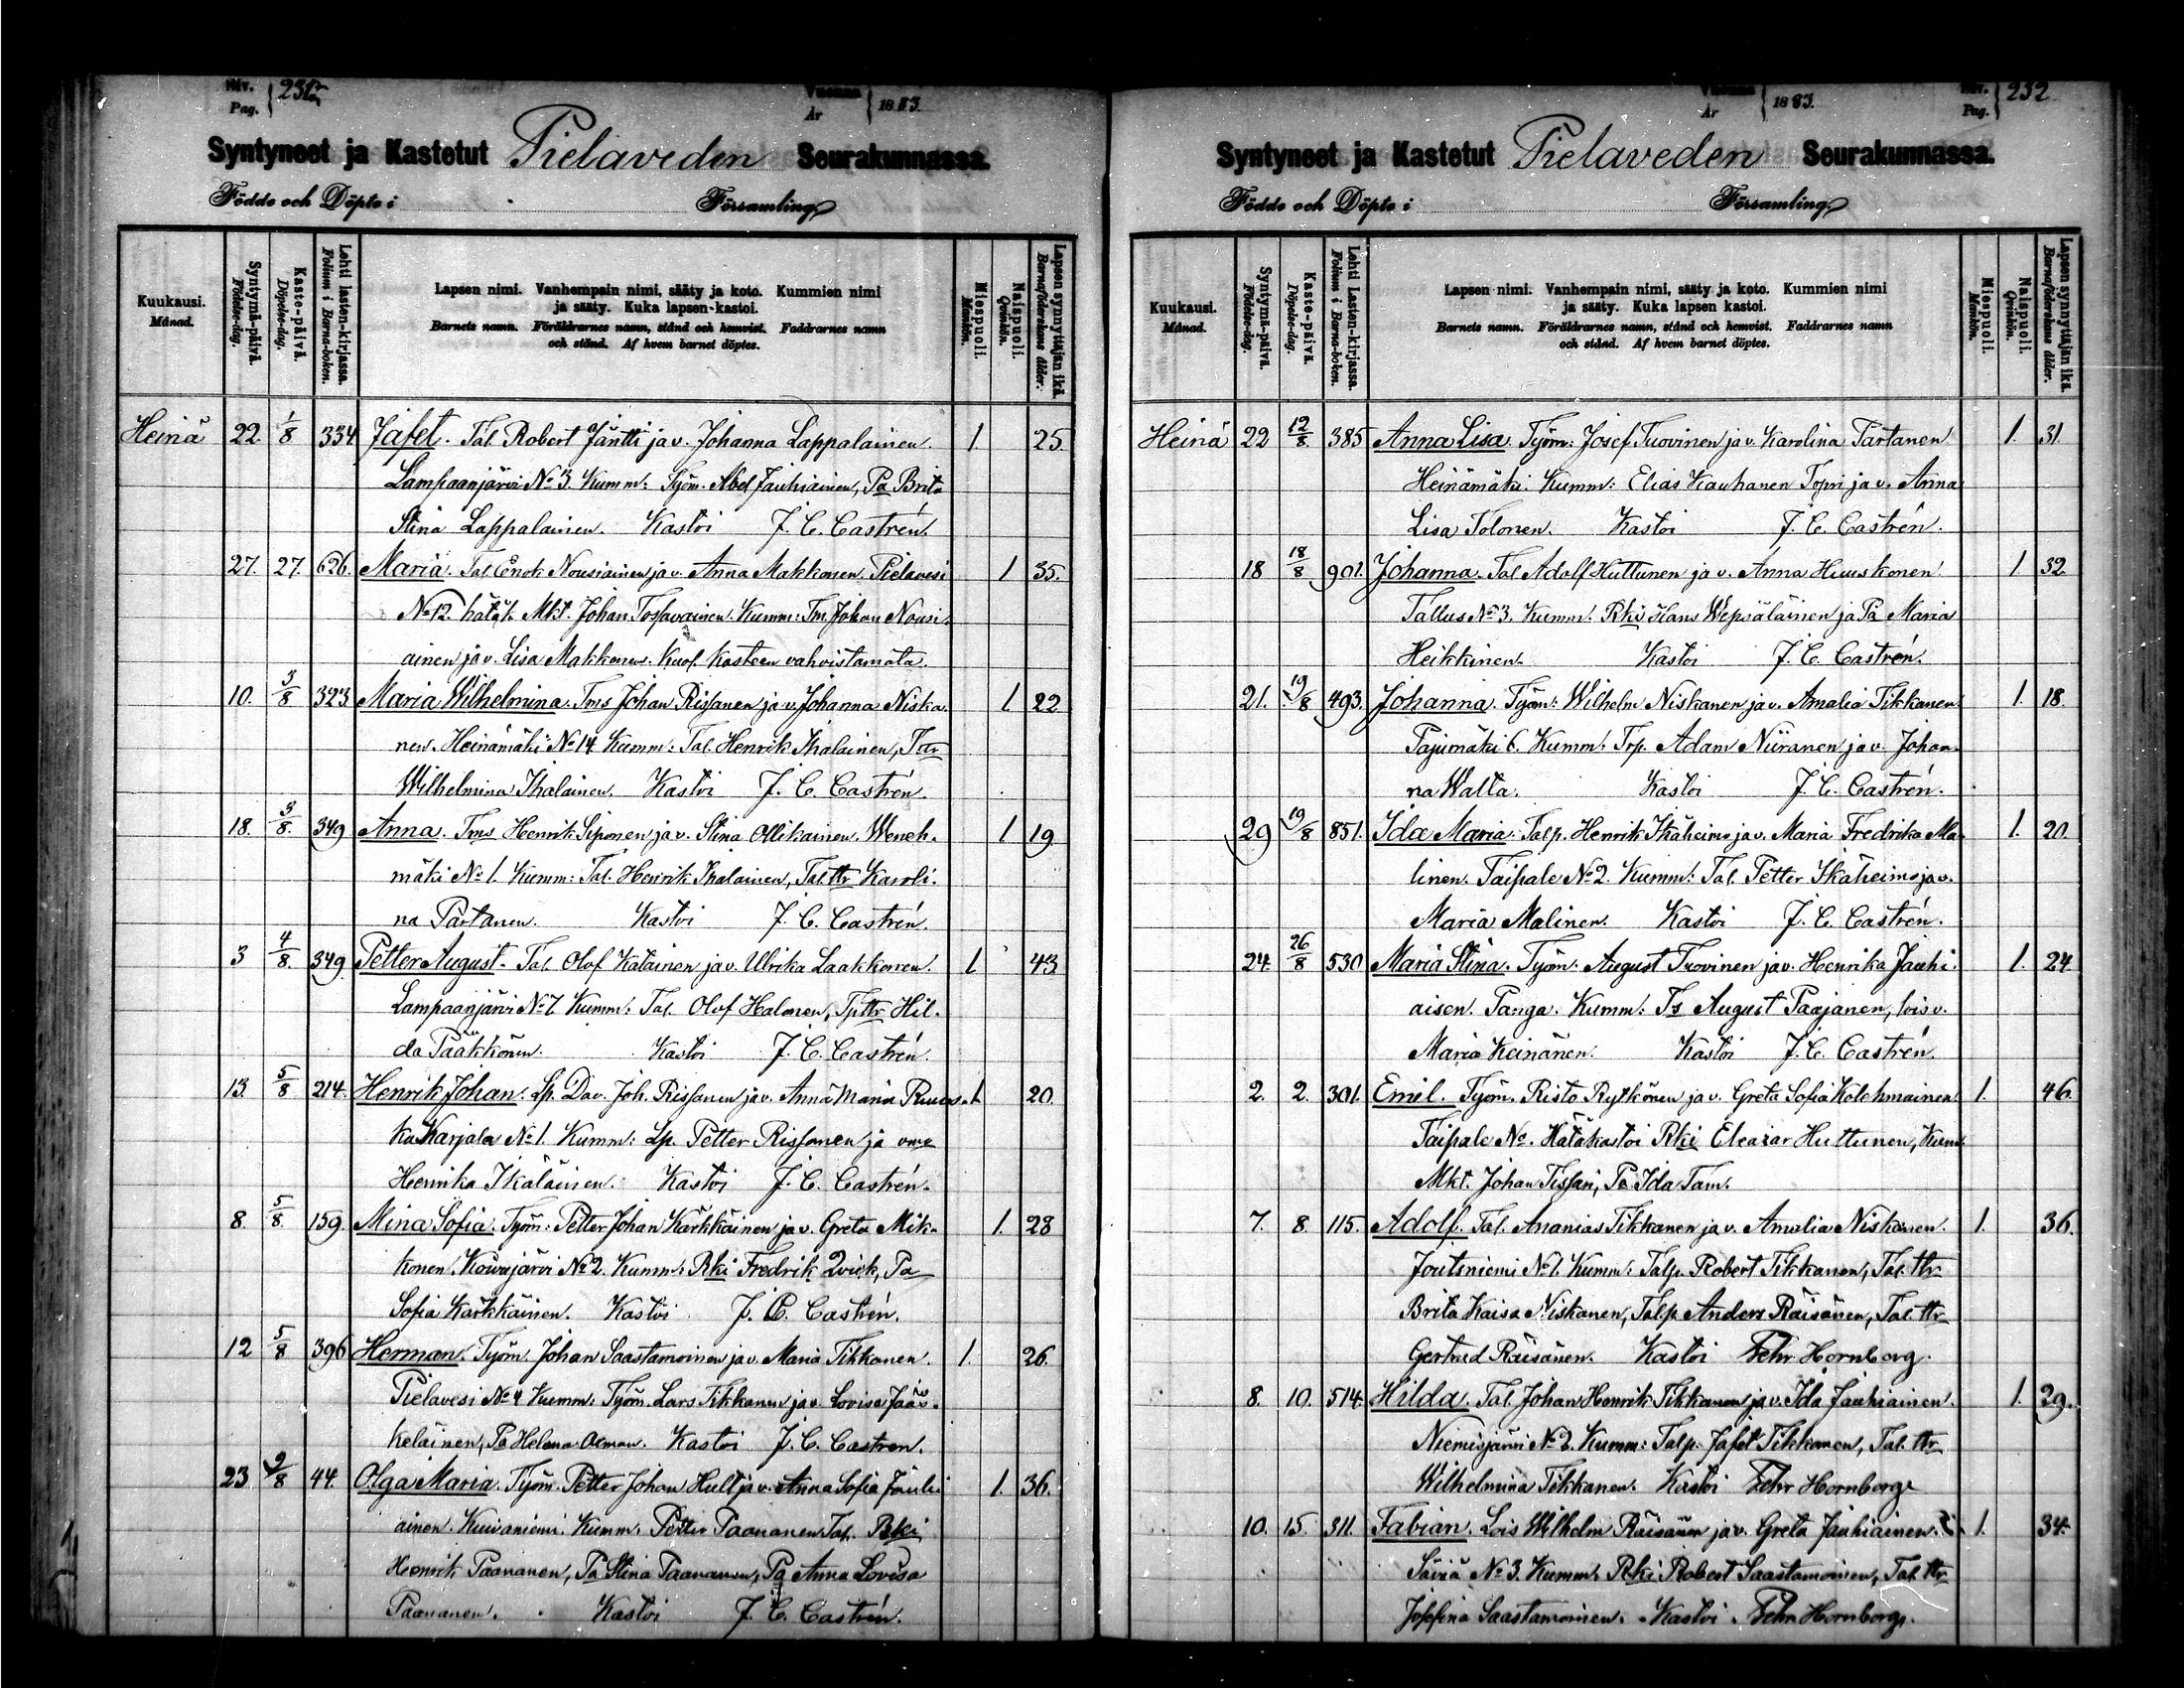 Siv.
Pag. 231
Vuonna
År 1883.
Syntyneet ja Kastetut Pielaveden Seurakunnassa.
Födde och Döpte i Församling
Kuukausi.
Månad.
Syntymä-päivä.
Födelse-dag.
Kaste-päivä.
Döpelse-dag.
Lehti lasten-kirjassa.
Folium i Barna-boken.
Lapsen nimi. Vanhempain nimi, sääty ja koto. Kummien nimi
ja sääty. Kuka lapsen kastoi.
Barnets namn. Föräldrarnes namn, stånd och hemvist. Faddrarnes namn
och stånd. Af hvem barnet döptes.
Miespuoli.
Mankön.
Naispuoli.
Qvinkön.
Lapsen synnyttäjän ikä.
Barnaföderskans ålder.
Heinä 22 1/8 334 Jafet. Tal. Robert Jäntti ja v. Johanna Lappalainen. 1. 25.
Lampaanjärvi No 3. Kumm: Työm. Abel Jauhiainen, Pa Brita
Stina Lappalainen. Kastoi J. C. Castrén.
27. 27. 626. Maria. Tal. Enok Nousiainen ja v. Anna Makkonen. Pielavesi 1 35.
No 12. hätäk. Mkt. Johan Tossavainen. Kumm: Tm. Johan Nousi-
ainen ja v. Lisa Makkonen. Kuol. kasteen vahvistamata.
10. 3/8 323 Maria Wilhelmina. Tms Johan Rissanen ja v. Johanna Niska- 1. 22
nen. Heinämäki No 14 Kumm: Tal. Henrik Ihalainen, Ttr
Wilhelmina Ihalainen. Kastoi J. C. Castrén.
18. 3/8. 349 Anna. Tms Henrik Siponen ja v. Stina Ollikainen. Weneh- 1 19
mäki No 1. Kumm: Tal. Henrik Ihalainen, Tal. ttr Karoli-
na Partanen. Kastoi J. C. Castrén.
3 4/8. 349 Petter August. Tal. Olof Katainen ja v. Ulrika Laakkonen. 1. 43
Lampaanjärvi No 7. Kumm: Tal. Olof Halonen, Tp. ttr Hil-
da Pääkkönen. Kastoi J. C. Castrén.
13. 5/8 214. Henrik Johan. Lp. Dav. Joh. Rissanen ja v. Anna Maria Ruus- 1 20.
ka Karjala No 1. Kumm: Lp. Petter Rissanen ja
Henrika Ikäläinen. Kastoi J. C. Castrén.
8. 5/8. 159. Mina Sofia. Työm: Petter Johan Kärkkäinen ja v. Greta Mik- 1. 28
konen. Kowajärvi No 2. Kumm: Rki Fredrik Qvick, Pa
Sofia Kärkkäinen. Kastoi J. C. Castrén.
12 5/8 396 Herman. Työm. Johan Saastamoinen ja v. Maria Tikkanen. 1. 26.
Pielavesi No 4 Kumm: Työm. Lars Tikkanen ja v. Lovisa Jääs-
keläinen, Pa Helena Kastoi J. C. Castren.
23. 9/8 44. Olga Maria. Työm. Petter Johan Hult ja v. Anna Sofia Jauhi- 1. 36.
ainen. Kuivaniemi. Kumm. Petter Paananen Tal. Rki
Henrik Paananen, Pa Stina Paananen, Pa Anna Lovisa
Paananen. Kastoi J. C. Castrén.
Vuonna
År 1883.
Siv.
Pag. 232
Syntyneet ja Kastetut Pielaveden Seurakunnassa.
Födde och Döpte i Församling
Kuukausi.
Månad.
Syntymä-päivä.
Födelse-dag.
Kaste-päivä.
Döpelse-dag.
Lehti Lasten-kirjassa.
Folium i Barna-boken.
Lapsen nimi. Vanhempain nimi, sääty ja koto. Kummien nimi
ja sääty. Kuka lapsen kastoi.
Barnets namn. Föräldrarnes namn, stånd och hemvist. Faddrarnes namn
och stånd. Af hvem barnet döptes.
Miespuoli.
Mankön.
Naispuoli.
Qvinkön.
Lapsen synnyttäjän ikä.
Barnaföderskans ålder.
Heinä 22 12/8. 385 Anna Lisa. Työm: Josef Tuovinen ja v. Karolina Partanen 1. 31.
Heinämäki. Kumm: Elias Kauhanen ja v. Anna
Lisa Tolonen. Kastoi J. C. Castrén.
18 18/8 901. Johanna. Tal. Adolf Huttunen ja v. Anna Huuskonen. 1 32
Tallus No 3. Kumm: Rki Hans Wepsäläinen ja Pa Maria
Heikkinen. Kastoi J. C. Castrén.
21. 19/8 493. Johanna. Työm: Wilhelm Niskanen ja v. Amalia Tikkanen 1. 18.
Pajumäki 6. Kumm: Trp. Adam Niiranen ja v. Johan-
na Walta. Kastoi J. C. Castrén.
29 19/8 851. Ida Maria. Talp. Henrik Ikäheimo ja v. Maria Fredrika Ma- 1. 20.
linen. Taipale No 2. Kumm: Tal. Petter Ikäheimo ja v.
Maria Malinen. Kastoi J. C. Castrén.
24. 26/8 530 Maria Stina. Työm: August Tuovinen ja v. Henrika Jauhi- 1. 24
aisen. Panga. Kumm: Ts August Paajanen, lois v.
Maria Keinänen. Kastoi J. C. Castrén.
2. 2. 301. Emil. Työm. Risto Rytkönen ja v. Greta Sofia Kolehmainen 1. 46.
Taipale No. Hätäkastoi Rki Eleazar Huttunen, Kum
Mkt. Johan Tissari, Pa Ida Tam.
7. 8. 115. Adolf. Tal. Ananias Tikkanen ja v. Amalia Niskanen. 1. 36.
Joutsniemi No 1. Kumm: Talp. Robert Tikkanen, Tal. ttr
Brita Kaisa Niskanen, Talp. Anders Räisänen, Tal. ttr
Gertrud Räisänen. Kastoi Fehr Hornborg.
8. 10. 514. Hilda. Tal. Johan Henrik Tikkanen ja v. Ida Jauhiainen. 1. 29.
Niemisjärvi No 2. Kumm: Talp. Jafet Tikkanen, Tal. ttr
Wilhelmina Tikkanen. Kastoi Fehr Hornborg
10. 15. 311. Fabian. Lois Wilhelm Räisänen ja v. Greta Jauhiainen. 1. 34.
Säviä No 3. Kumm. Rki Robert Saastamoinen, Tal. ttr
Josefina Saastamoinen. Kastoi Fehr Hornborg.